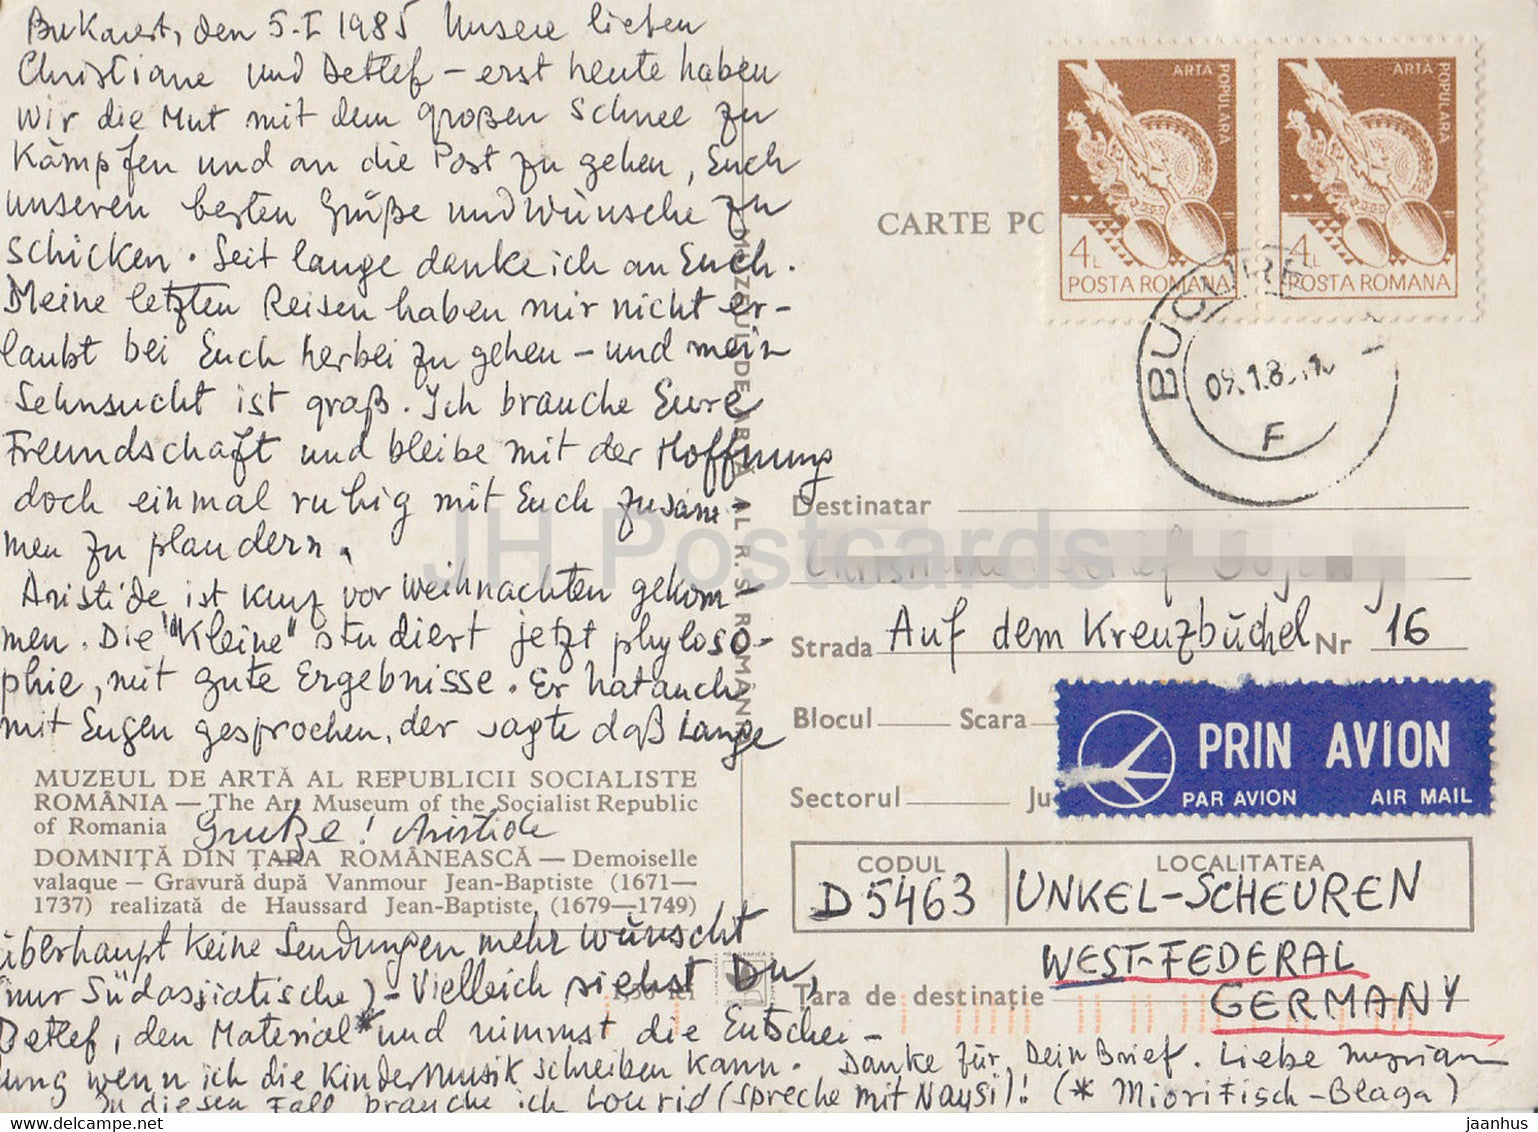 Bukarest, den 5-I 1985 Unsere lieben
Christiane und Detlef – erst heute haben
wir die Mut mit dem großen Schnee zu
kämpfen und an die Post zu gehen, Euch
unseren besten Grüße und Wünsche zu
schicken. Seit lange danke ich an Euch.
Meine letzten Reisen haben mir nicht er-
laubt bei Euch herbei zu gehen – und mein
Sehnsucht ist groß. Ich brauche Eure
Freundschaft und bleibe mit der Hoffnung
doch einmal ruhig mit Euch zusam
men zu plaudern.
Aristide ist kurz vor Weihnachten gekom-
men. Die "Kleine" studiert jetzt phyloso-
phie, mit gute Ergebnisse. Er hat auch
mit Eugen gesprochen, der sagte daß lange
MUZEUL DE ARTĂ AL REPUBLICII SOCIALISTE
ROMÂNIA — The Art Museum of the Socialist Republic
of Romania
Grutze! Aristide
DOMNIȚĂ DIN ȚARA ROMÂNEASCĂ — Demoiselle
valaque — Gravură după Vanmour Jean-Baptiste (1671—
1737) realizată de Haussard Jean-Baptiste (1679—1749)
überhaupt keine Sendungen mehr wünscht
(nur Südasiatische) – Vielleich siehst Du,
Detlef, den Material* und nimmst die Entschei-
ung wenn ich die Kindermusik schreiben kann. Danke für Dein Brief. Liebe Myriam
In diesen Fall brauche ich (spreche mit Naysi)! (* Mioritisch-Blaga)
MUZEUL DE ARTĂ AL R. S. ROMÂNIA
CARTE PO
ARTA POPULARA
4L
POSTA ROMANA
ARTA POPULARA
4L
POSTA ROMANA
BUCURE
F
Destinatar
Strada Auf dem Kreuzbüchel Nr 16
Blocul Scara
Sectorul Ju
PRIN AVION
PAR AVION AIR MAIL
CODUL LOCALITATEA
D 5463 UNKEL-SCHEUREN
WEST-FEDERAL
Țara de destinație GERMANY
JH Postcards
delcampe.net
jaanhus